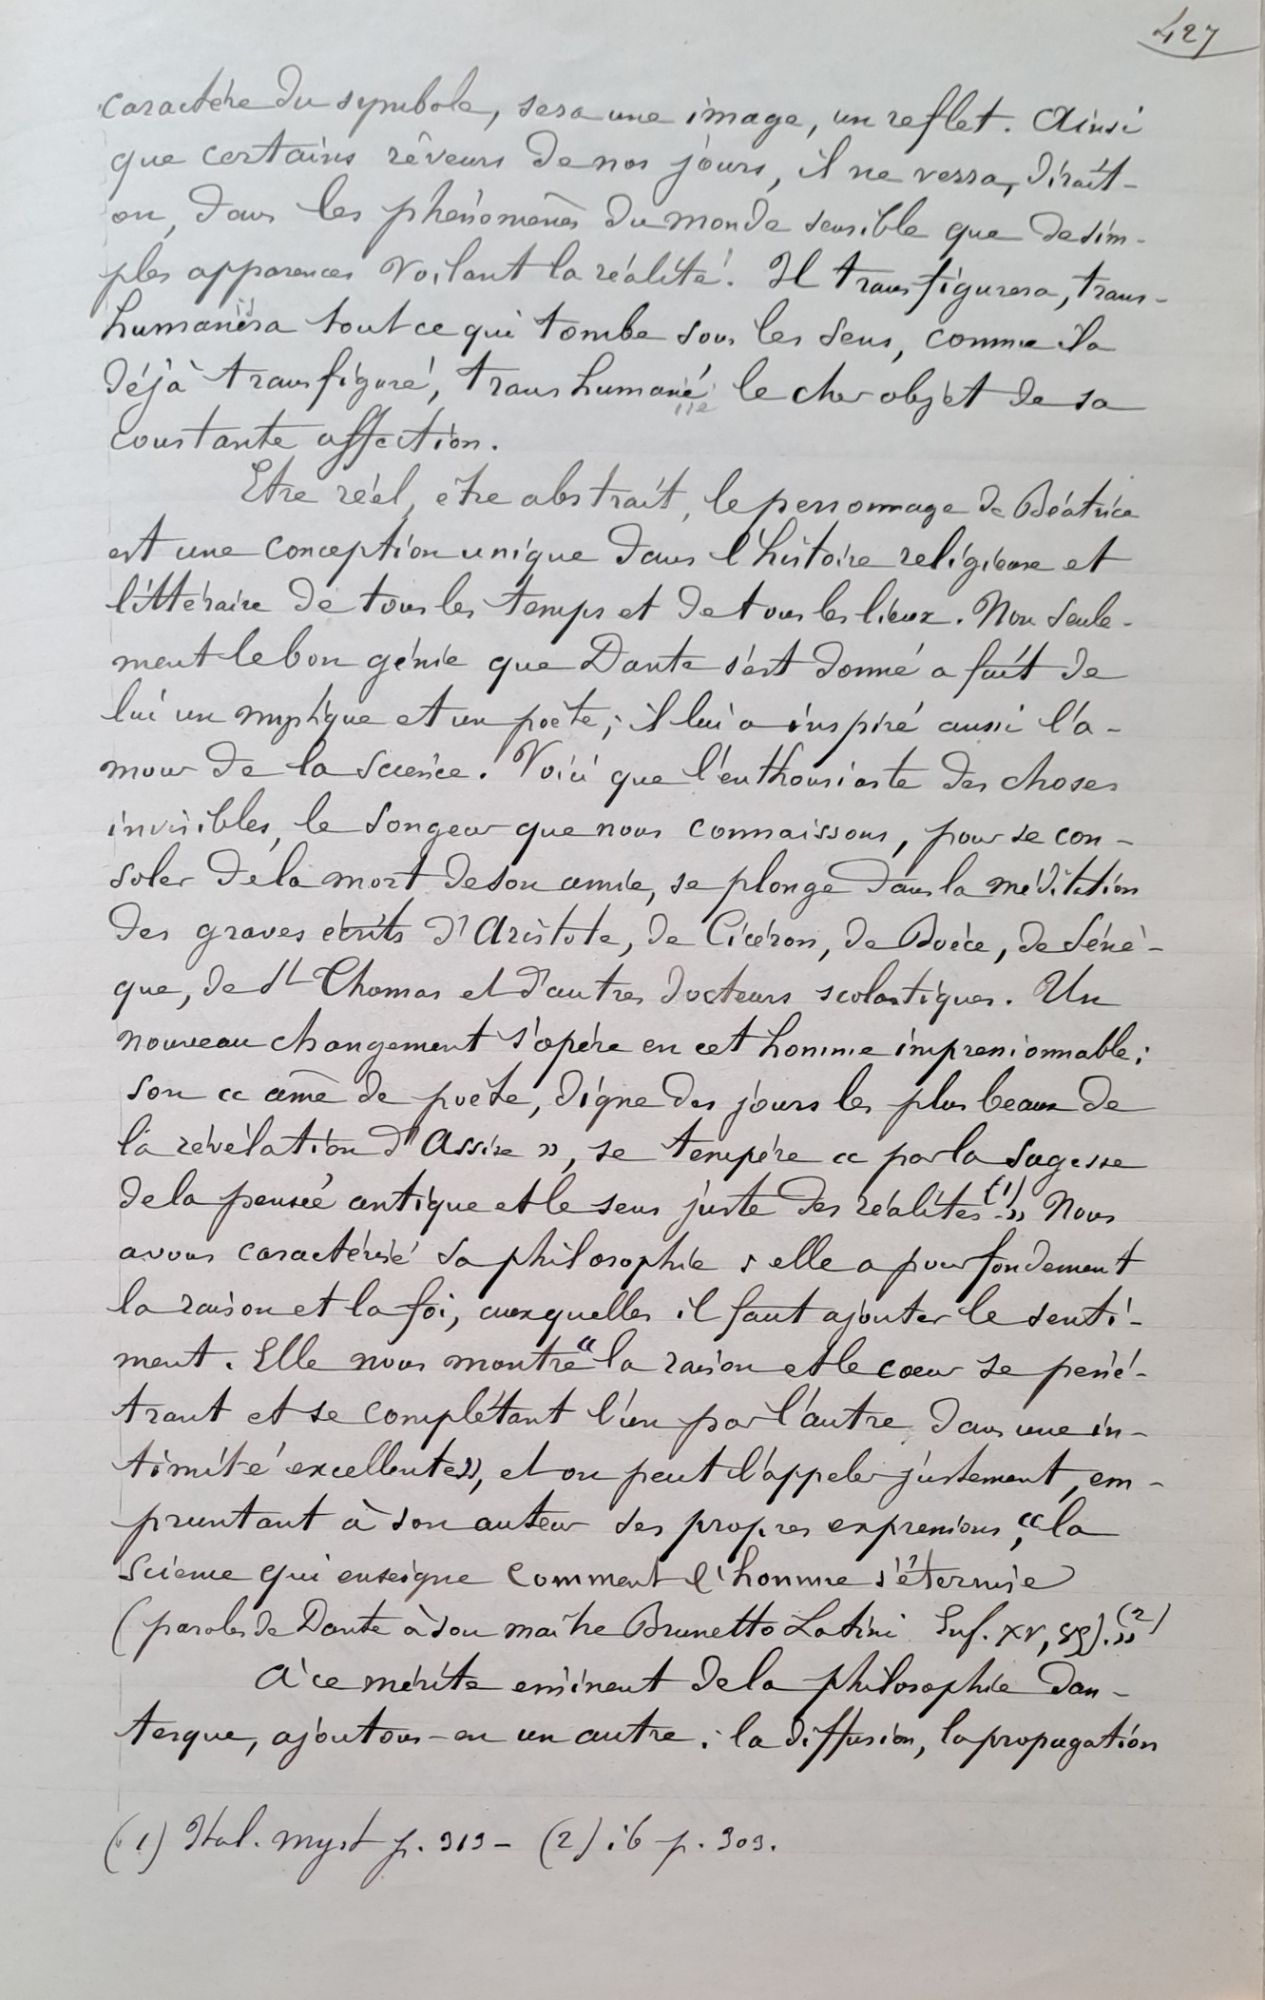 427
caractère du symbole, sera une image, un reflet. Ainsi
que certains rêveurs de nos jours, il ne verra, dirait-
on, dans les phénomènes du monde sensible que de sim-
ples apparences voilant la réalité. Il transfigurera, trans-
humanera tout ce qui tombe sous les sens, comme il a
déjà transfiguré, transhumané le cher objet de sa
constante affection.
Etre réel, être abstrait, le personnage de Béatrice
est une conception unique dans l'histoire religieuse et
littéraire de tous les temps et de tous les lieux. Non seule-
ment le bon génie que Dante s'est donné a fait de
lui un mystique et un poète; il lui a inspiré aussi l'a-
mour de la science. Voici que l'enthousiaste des choses
invisibles, le songeur que nous connaissons, pour se con-
soler de la mort de son amie, se plonge dans la méditation
des graves écrits d'Aristote, de Cicéron, de Boèce, de Sénè-
que, de St Thomas et d'autres docteurs scolastiques. Un
nouveau changement s'opère en cet homme impressionnable;
son « âme de poète, digne des jours les plus beaux de
la révélation d'Assise », se tempère « par la sagesse
de la pensée antique et le sens juste des réalités (1)». Nous
avons caractérisé sa philosophie : elle a pour fondement
la raison et la foi, auxquelles il faut ajouter le senti-
ment. Elle nous montre "la raison et le coeur se péné-
trant et se complétant l'un par l'autre dans une in-
timité excellente», et on peut l'appeler justement, em-
pruntant à son auteur ses propres expressions, "la
science qui enseigne comment l'homme s'éternise
(paroles de Dante à son maître Brunetto Latini Inf. XV, 85).» (2)
A ce mérite éminent de la philosophie dan-
tesque, ajoutons-en un autre : la diffusion, la propagation
(1) Ital. myst p. 313 - (2) ib p. 303.